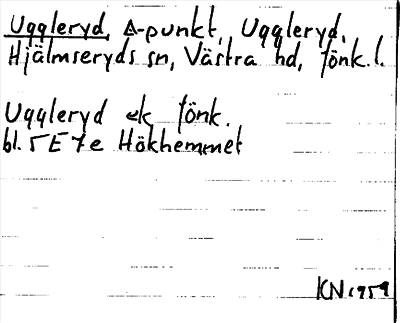 Uggleryd, Δ-punkt, Uggleryd,
Hjälmseryds sn, Västra hd, Jönk. l.
Uggleryd ek Jönk.
bl. 5E 7e Hökhemmet
KN 1959